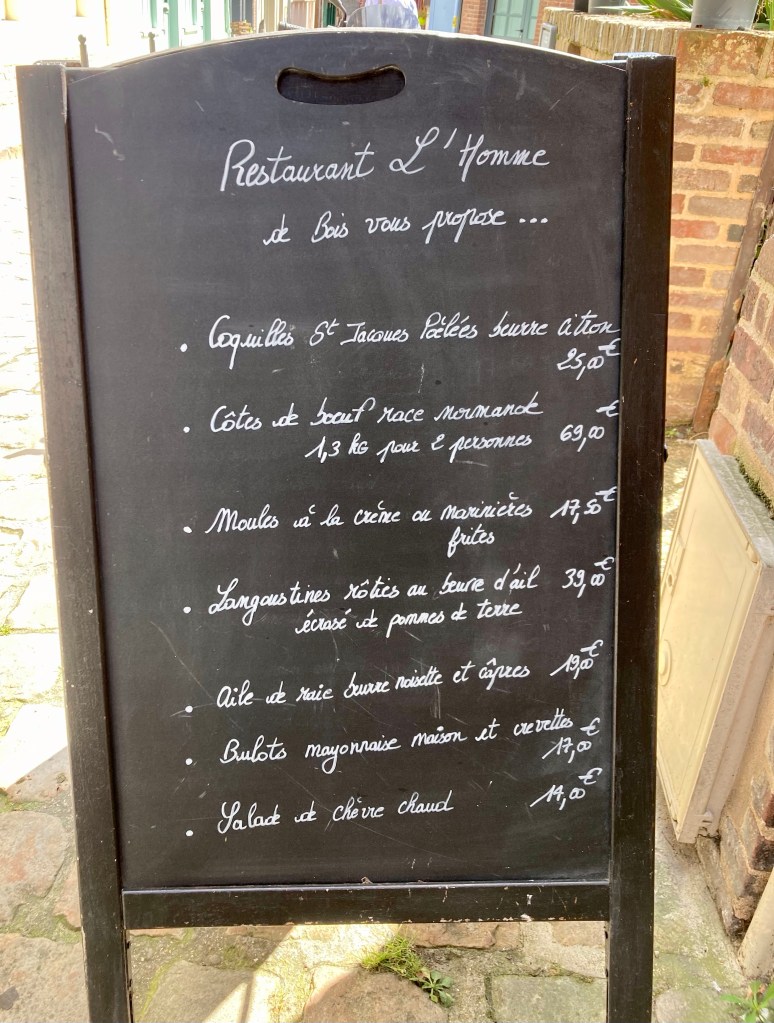 Restaurant L'Homme
de Bois vous propose ...
. Coquilles St Jacques Poêlées beurre citron
25,00€
. Côtes de boeuf race normande
1,3 kg pour 2 personnes 69,00€
. Moules à la crème ou marinières 17,50€
frites
. Langoustines rôties au beurre d'ail 39,00€
écrasé de pommes de terre
. Aile de raie beurre noisette et câpres 19,00€
. Bulots mayonnaise maison et crevettes
17,00€
. Salade de chèvre chaud 14,00€